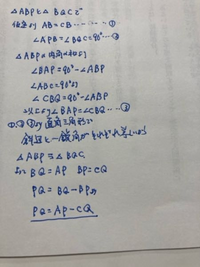 △ABPと△BQCで
仮定から AB=CB ……… ①
∠APB=∠BQC=90° … ②
△ABPの内角の和から
∠BAP=90°-∠ABP
∠ABC=90°から
∠CBQ=90°-∠ABP
以上から ∠BAP=∠CBQ … ③
①,②,③から 直角三角形で
斜辺と一鋭角がそれぞれ等しいから
△ABP≡△BQC
BQ=AP BP=CQ
PQ=BQ-BPから
PQ=AP-CQ